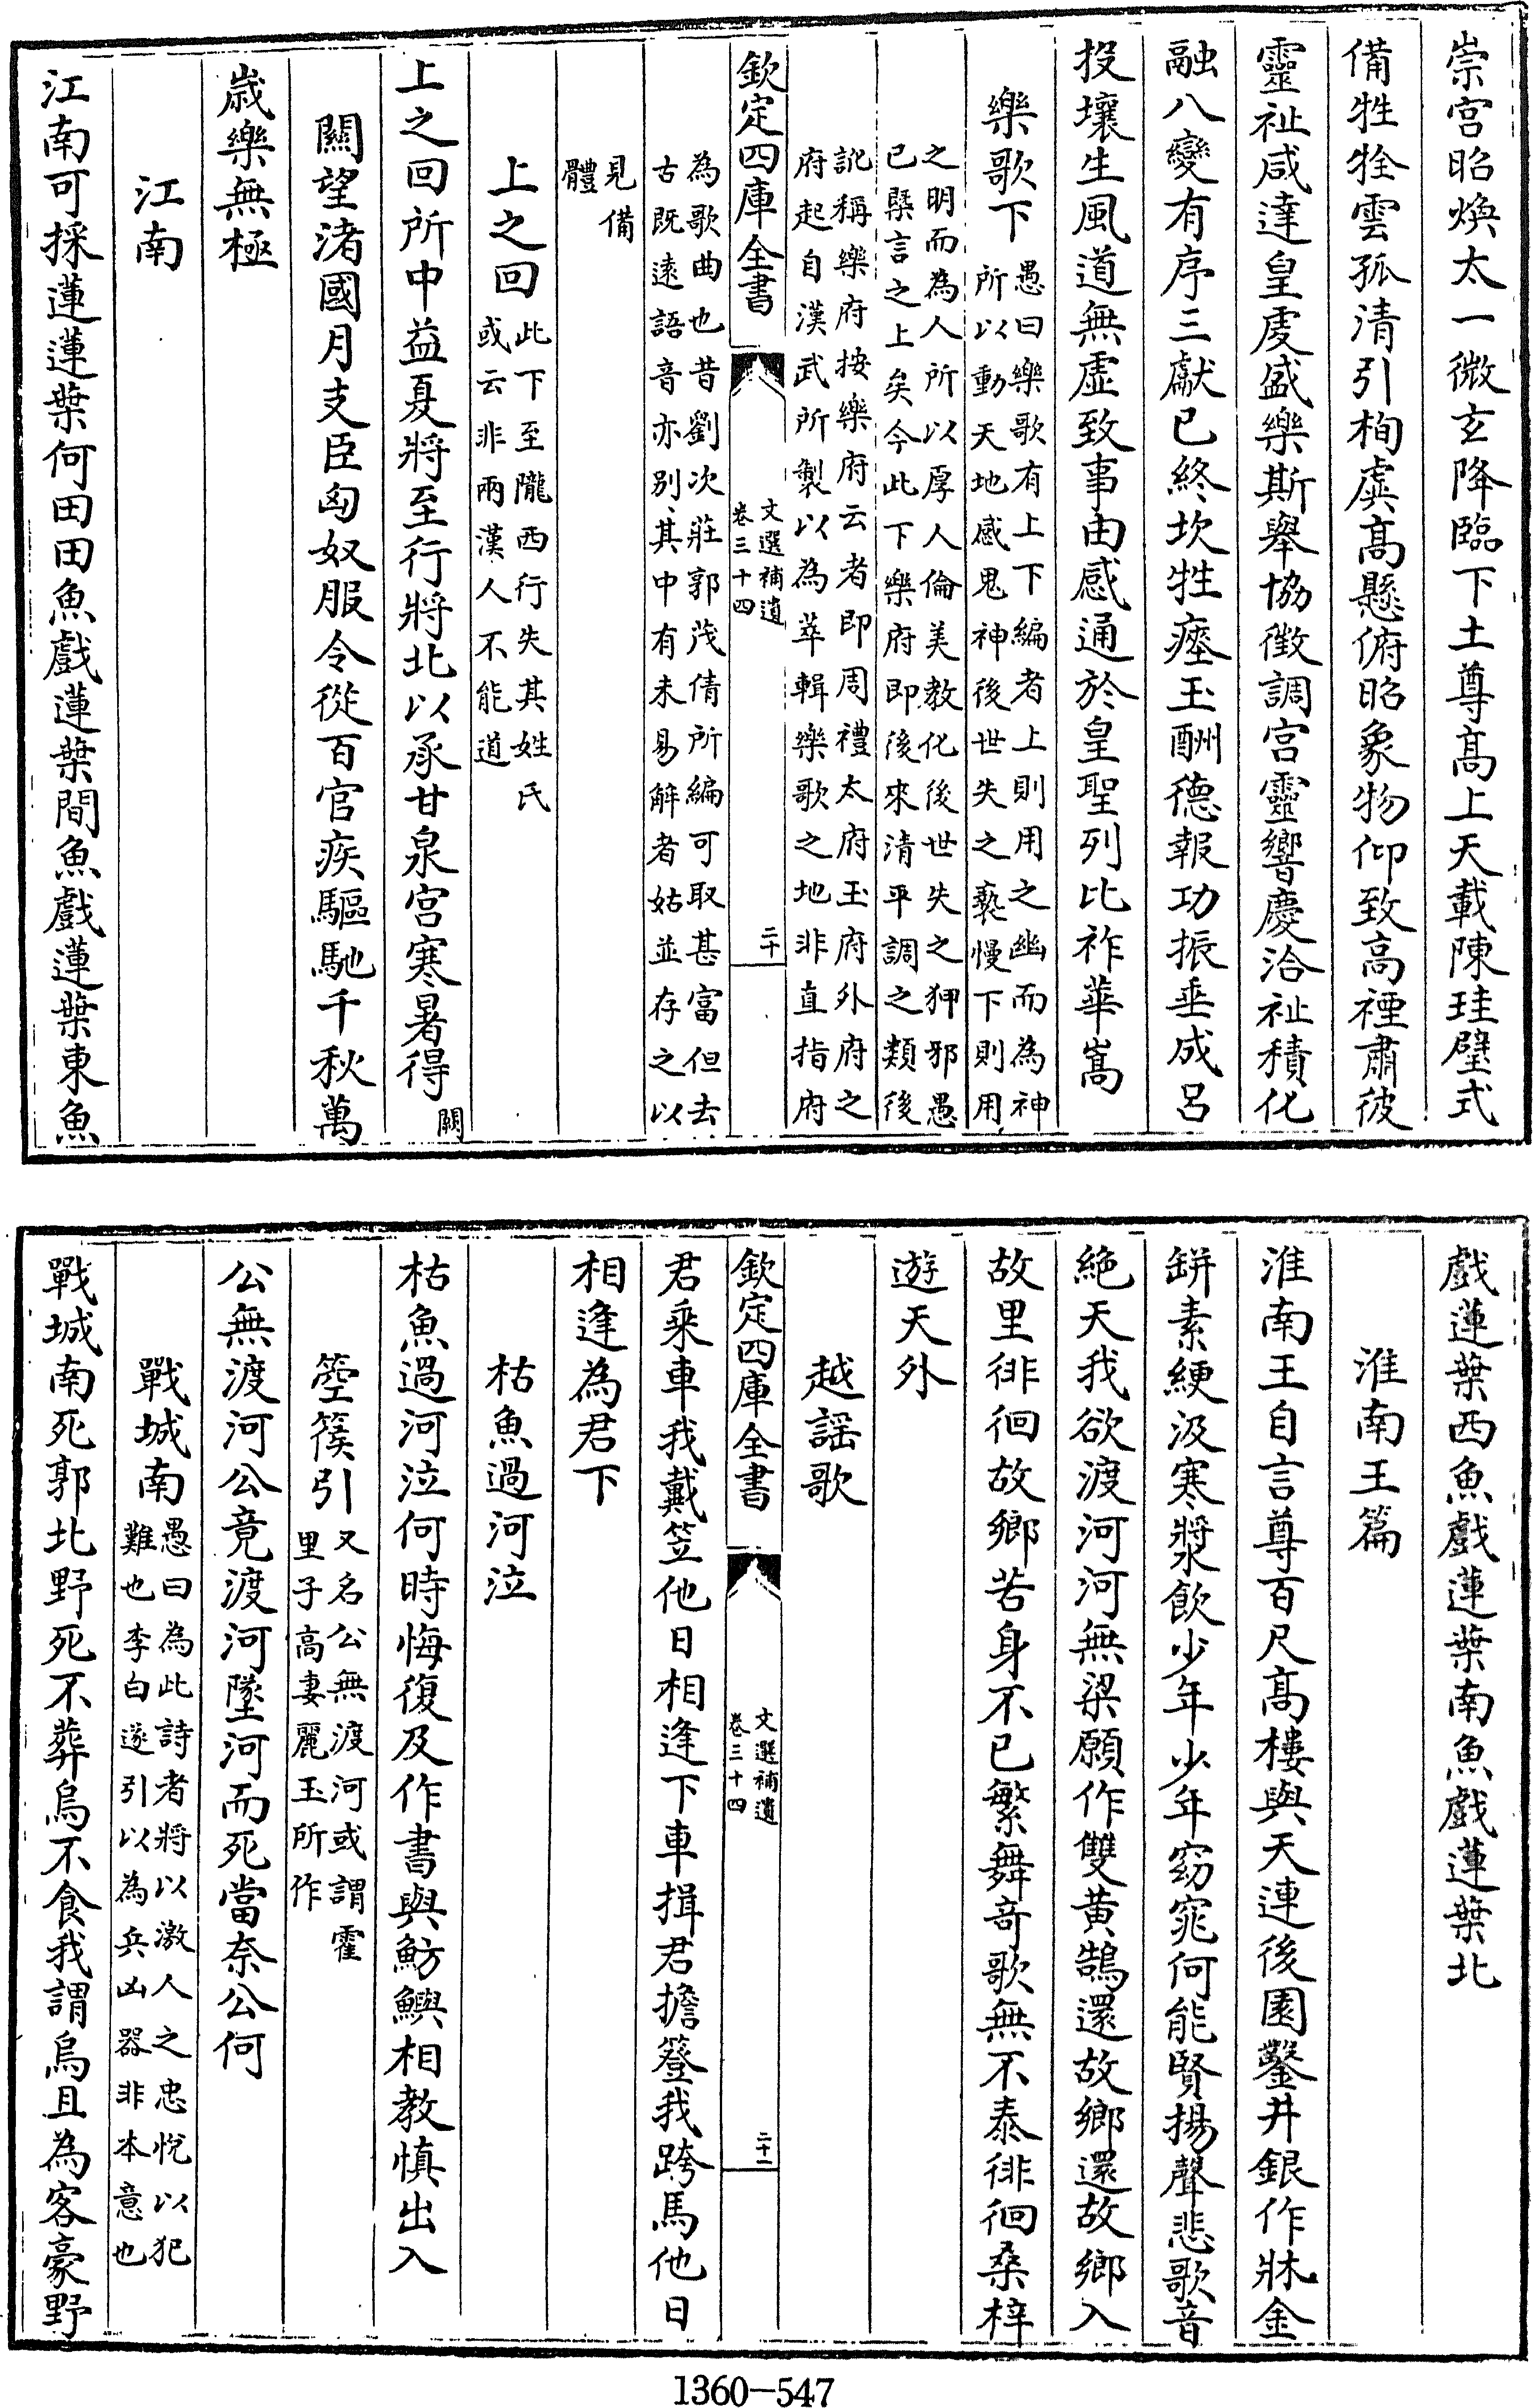 崇宫昭煥太一微玄降臨下土尊髙上天載陳珪璧式
備牲牷雲孤清引栒虡髙懸俯昭象物仰致高禋肅彼
靈祉咸達皇虔盛樂斯舉協徴調宫靈響慶洽祉積化
融八變有序三獻已終坎牲瘞玉酬德報功振垂成呂
投壤生風道無虚致事由感通於皇聖列比祚華嵩
樂歌下
愚曰樂歌有上下編者上則用之幽而為神
所以動天地感鬼神後世失之褻慢下則用
之明而為人所以厚人倫美教化後世失之狎邪愚
已槩言之上矣今此下樂府即後來清平調之類後
訛稱樂府按樂府云者即周禮太府玉府外府之
府起自漢武所製以為萃輯樂歌之地非直指府
欽定四庫全書
文選補遺
卷三十四
二十
為歌曲也昔劉次莊郭茂倩所編可取甚富但去
古既遠語音亦别其中有未易解者姑並存之以
見備
體
上之回
此下至隴西行失其姓氏
或云非兩漢人不能道
上之回所中益夏將至行將北以承甘泉宫寒暑得
闕
關望渚國月支臣匈奴服令從百官疾驅馳千秋萬
歳樂無極
江南
江南可採蓮蓮葉何田田魚戲蓮葉間魚戲蓮葉東魚
戲蓮葉西魚戲蓮葉南魚戲蓮葉北
淮南王篇
淮南王自言尊百尺髙樓與天連後園鑿井銀作牀金
缾素綆汲寒漿飲少年少年窈窕何能賢揚聲悲歌音
絶天我欲渡河河無梁願作雙黄鵠還故鄉還故鄉入
故里徘徊故鄉苦身不已繁舞竒歌無不泰徘徊桑梓
遊天外
越謡歌
欽定四庫全書
文選補遺
卷三十四
二十一
君乘車我戴笠他日相逢下車揖君擔簦我跨馬他日
相逢為君下
枯魚過河泣
枯魚過河泣何時悔復及作書與魴鱮相教慎出入
箜篌引
又名公無渡河或謂霍
里子高妻麗玉所作
公無渡河公竟渡河墜河而死當奈公何
戰城南
愚曰為此詩者將以激人之忠悅以犯
難也李白遂引以為兵凶器非本意也
戰城南死郭北野死不葬烏不食我謂烏且為客豪野
1360-547